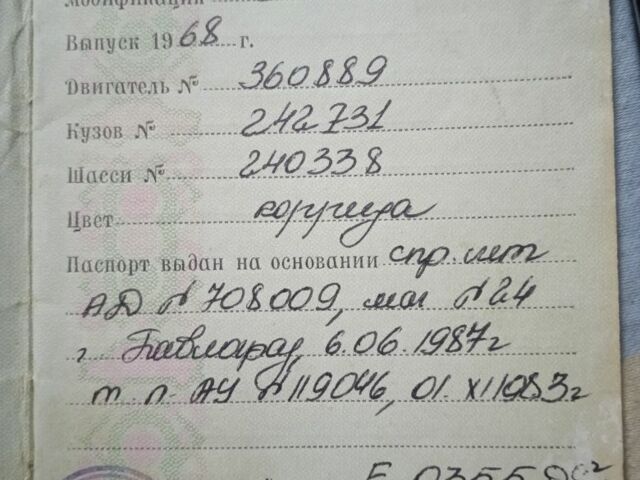 Модификация
Выпуск 1968 г.
Двигатель № 360889
Кузов № 242731
Шасси № 240338
Цвет коррида
Паспорт выдан на основании спр. счет
АД № 708009, маг №24
г Павлоград, 6.06.1987г
т.п. АУ №119046, 01.XI 1983г